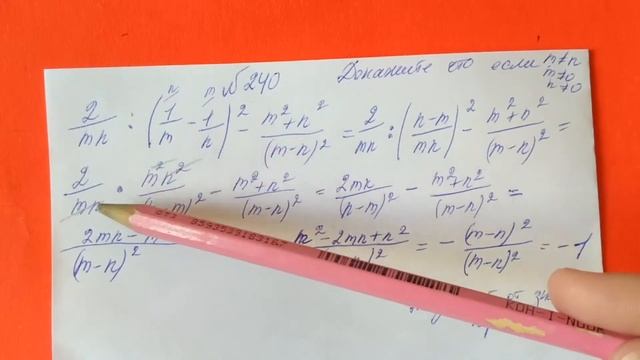 №240 Докажите что если m≠n
m≠0
n≠0
2/mn : (1/m - 1/n)² - (m²+n²)/(m-n)² = 2/mn : ((n-m)/mn)² - (m²+n²)/(m-n)² =
2/mn · m²n²/(n-m)² - (m²+n²)/(m-n)² = 2mn/(n-m)² - (m²+n²)/(m-n)² =
2mn - /(m-n)² n²-2mn+n² = - (m-n)²/(m-n)² = -1
KOH-I-NOOR